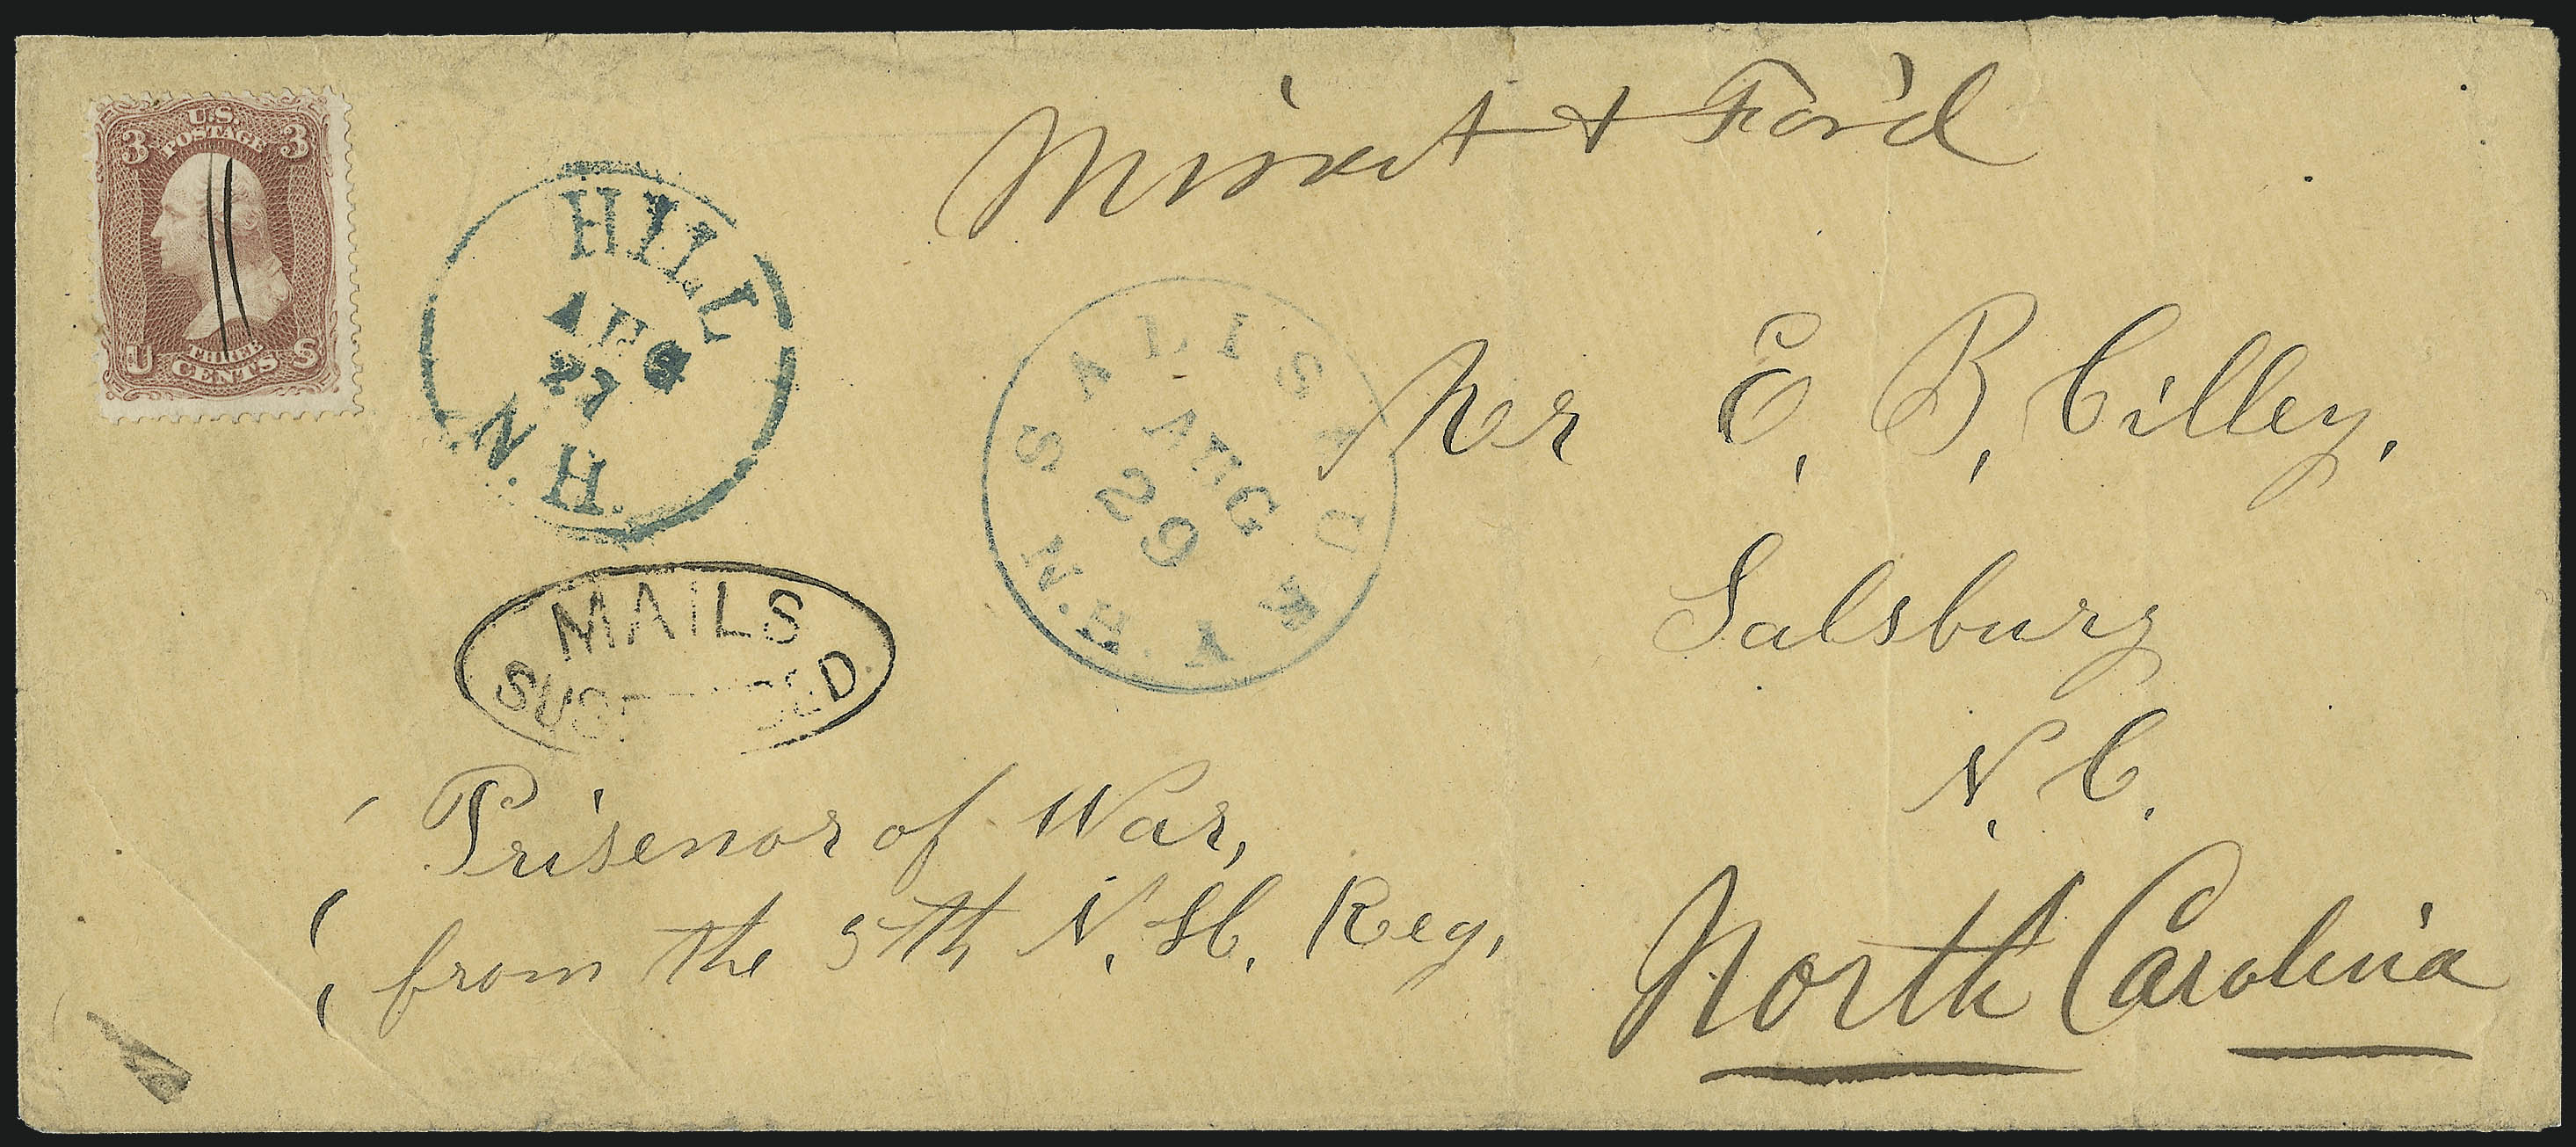 U.S.
POSTAGE
3 3
U THREE S
CENTS
HILL
AUG
27
N.H.
Missent + For'd
SALISBURY
AUG
29
N.H.
Mr E. B. Cilley,
Salsbury
N. C.
North Carolina
MAILS
SUSPENDED.
Prisenor of War,
from the 5th N. H. Reg,